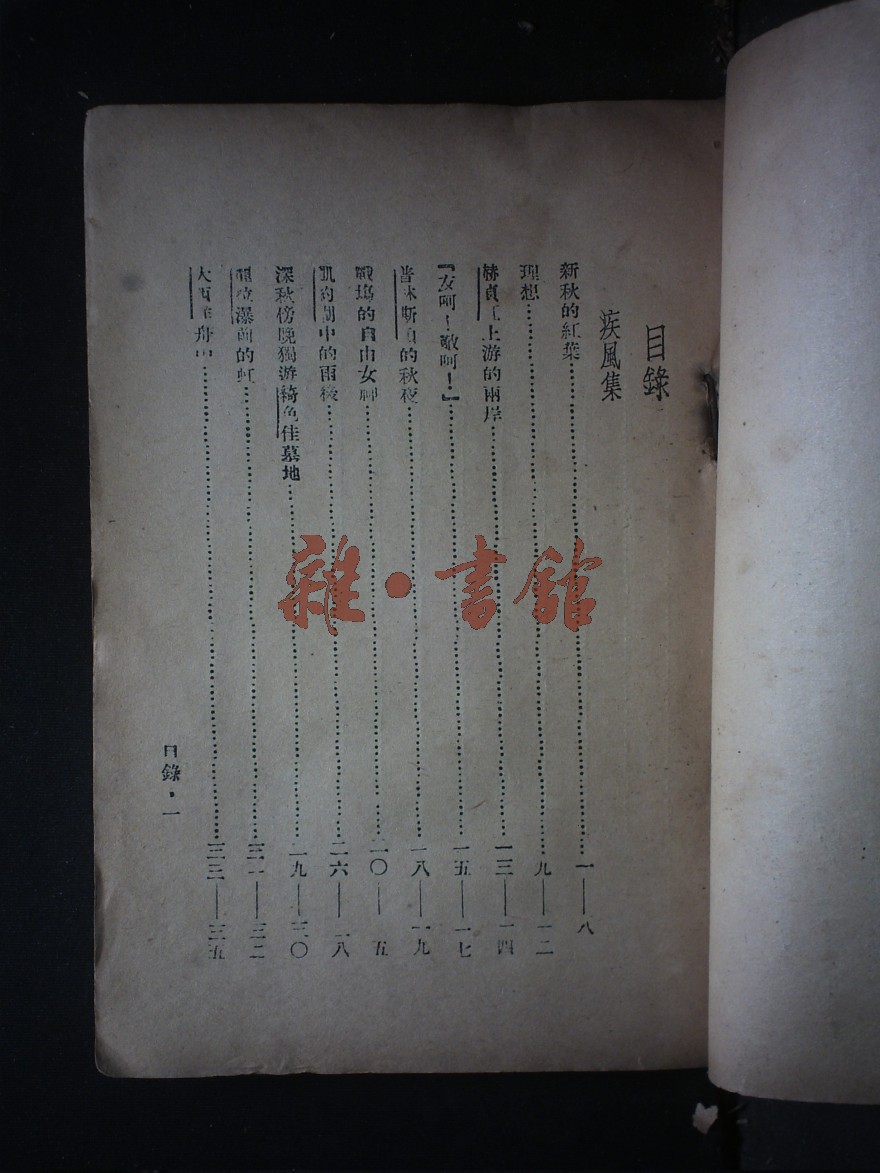 目錄
疾風集
新秋的紅葉 一——八
理想 九——一二
赫貞江上游的兩岸 一三——一四
『友呵！敵呵！』 一五——一七
普林斯頓的秋夜 一八——一九
戰塲的自由女神 二〇——五
凱約湖中的雨後 二六——八
深秋傍晚獨遊綺色佳墓地 九——三〇
瀑前的虹 三一——三二
大西洋舟中 三三——三五
目錄・一
雜・書館